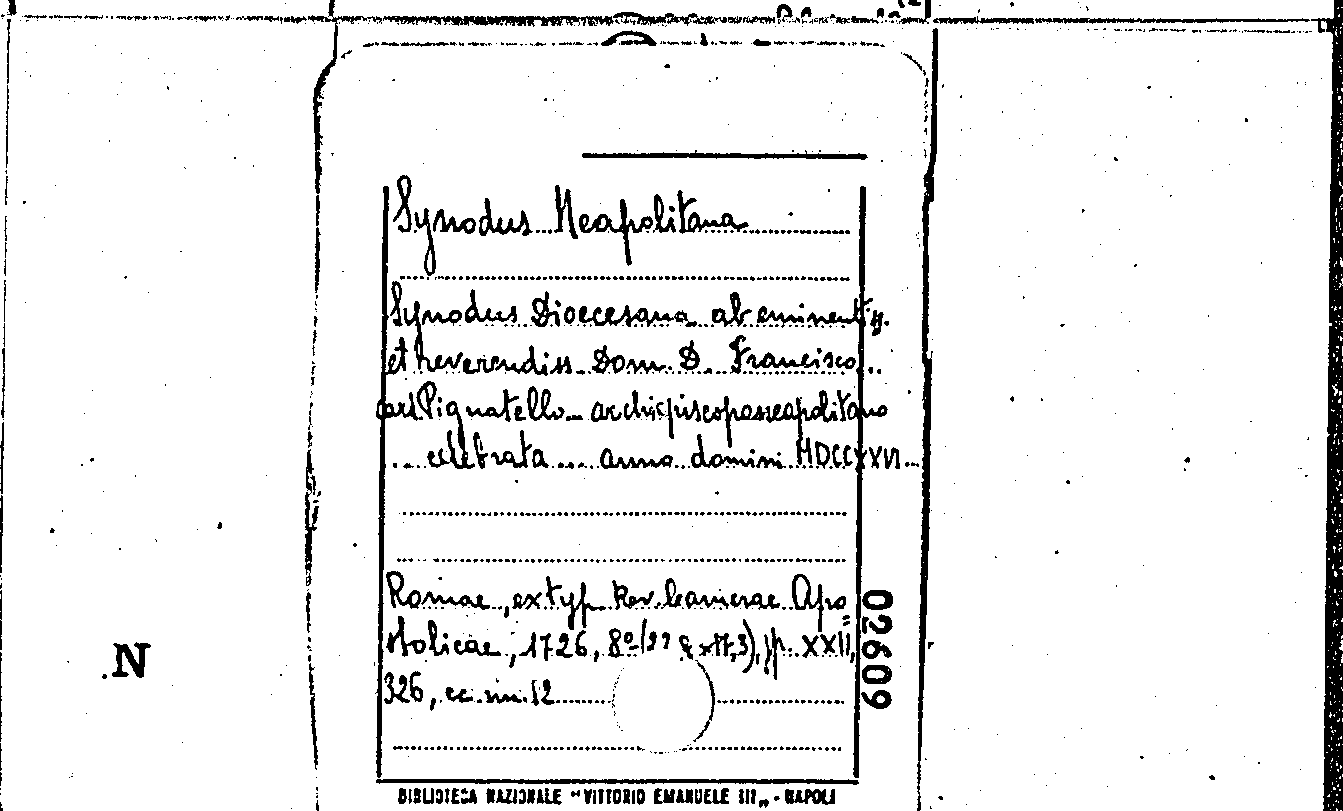 Synodus Neapolitana
Synodus Dioecesana ab eminentiss.
et reverendiss. Dom. D. Francisco...
card. Pignatello... archiepiscopo neapolitano
... celebrata ... anno domini MDCCXXVI...
Romae, ex typ. Rev. Camerae Apo=
stolicae, 1726, 8º pp. XXII,
326, cc. nn. 12
02609
.N
BIBLIOTECA NAZIONALE "VITTORIO EMANUELE III„ - NAPOLI